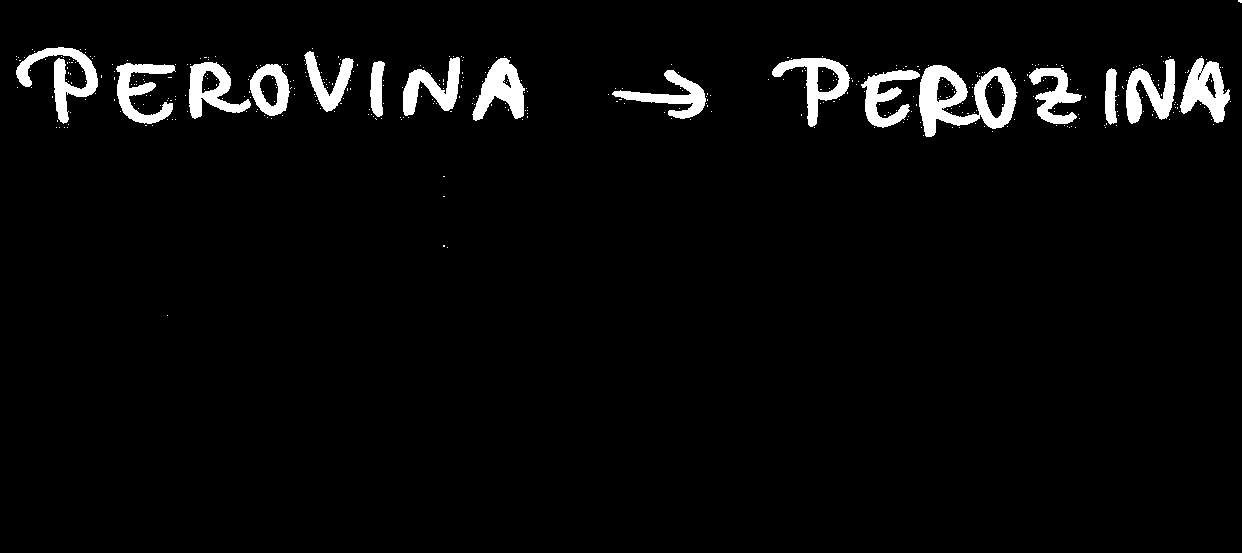 PEROVINA → PEROZINA